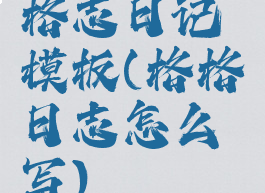 格志日记
模板(格格
日志怎么
写)